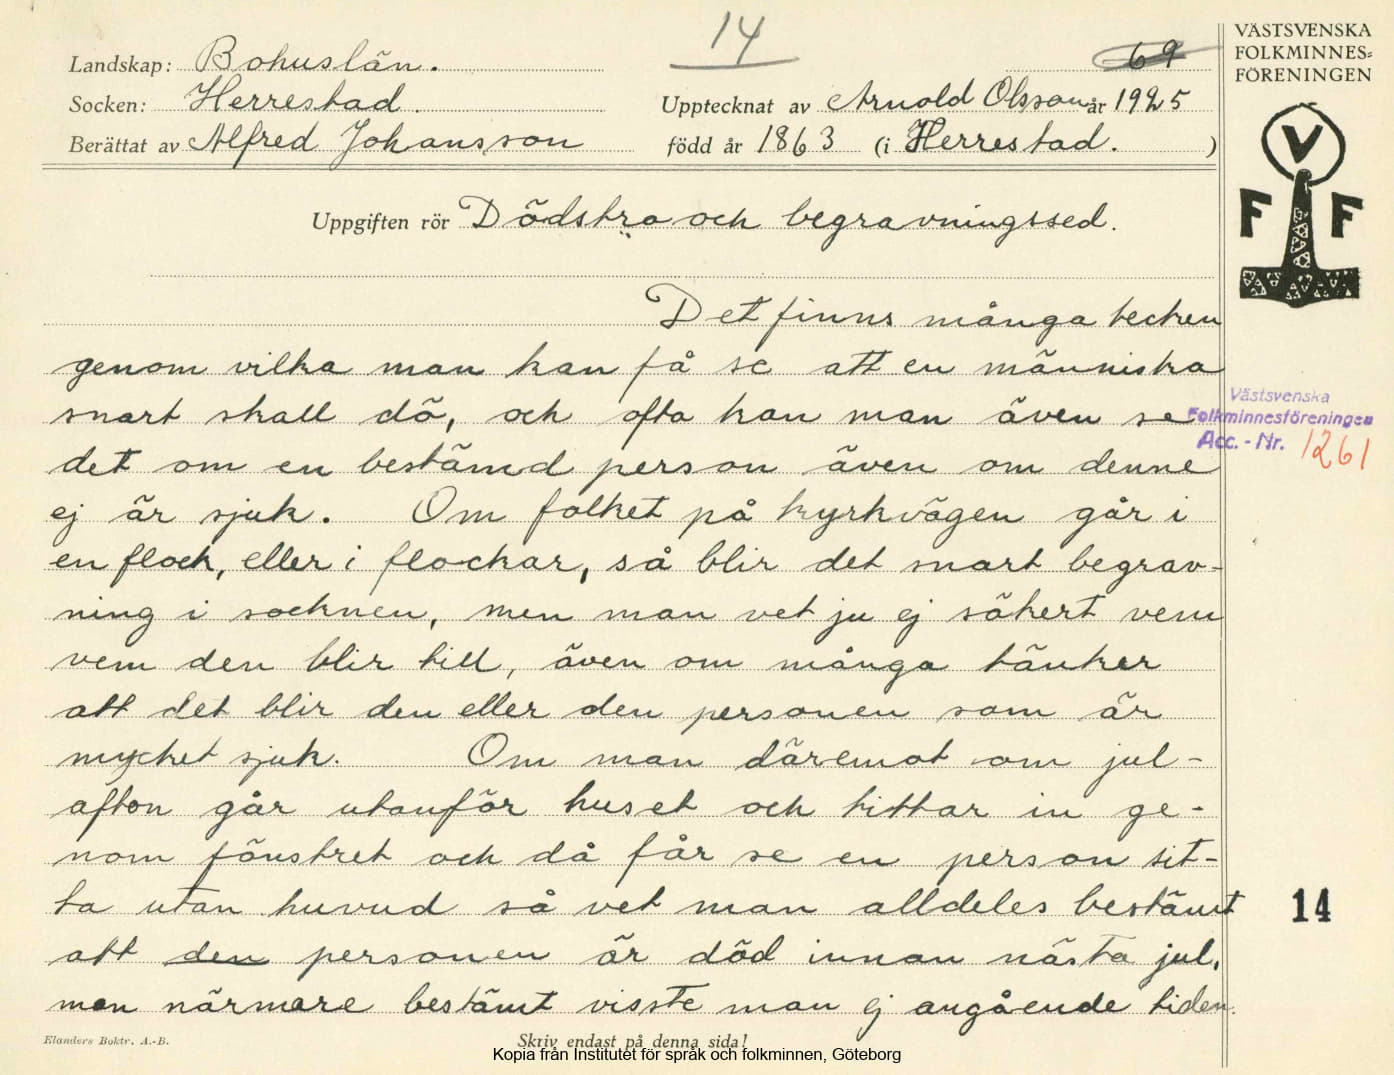 14
69
VÄSTSVENSKA
FOLKMINNES=
FÖRENINGEN
Landskap: Bohuslän.
Socken: Herrestad.
Upptecknat av Arnold Olsson år 1925
Berättat av Alfred Johansson
född år 1863 (i Herrestad. )
V
F F
Uppgiften rör Dödstro och begravningssed.
Det finns många tecken
genom vilka man kan få se att en människa
snart skall dö, och ofta kan man även se
det om en bestämd person även om denne
ej är sjuk. Om folket på kyrkvägen går i
en flock, eller i flockar, så blir det snart begrav-
ning i socknen, men man vet ju ej säkert vem
vem den blir till, även om många tänker
att det blir den eller den personen som är
mycket sjuk. Om man däremot om jul-
afton går utanför huset och tittar in ge-
nom fönstret och då får se en person sit-
ta utan huvud så vet man alldeles bestämt
att den personen är död innan nästa jul,
men närmare bestämt visste man ej angående tiden.
Västsvenska
Folkminnesföreningen
Acc. - Nr. 1261
14
Elanders Boktr. A.-B.
Skriv endast på denna sida!
Kopia från Institutet för språk och folkminnen, Göteborg